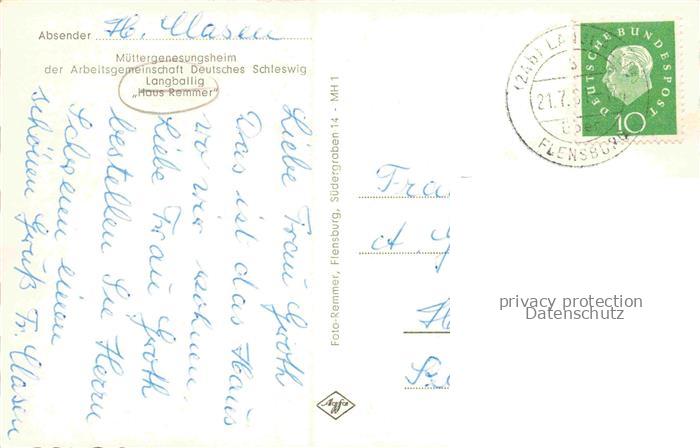 Absender H. Clasen
Müttergenesungsheim
der Arbeitsgemeinschaft Deutsches Schleswig
Langballig
„Haus Remmer"
Liebe Frau Groth
Das ist das Haus
wo wir wohnen.
Liebe Frau Groth
bestellen Sie Herrn
einen
schönen Gruß Fr. Clasen
Foto-Remmer, Flensburg, Südergraben 14 - MH 1
Agfa
DEUTSCHE BUNDESPOST
10
(24b)
21.7.
über
FLENSBURG
Frau
privacy protection
Datenschutz